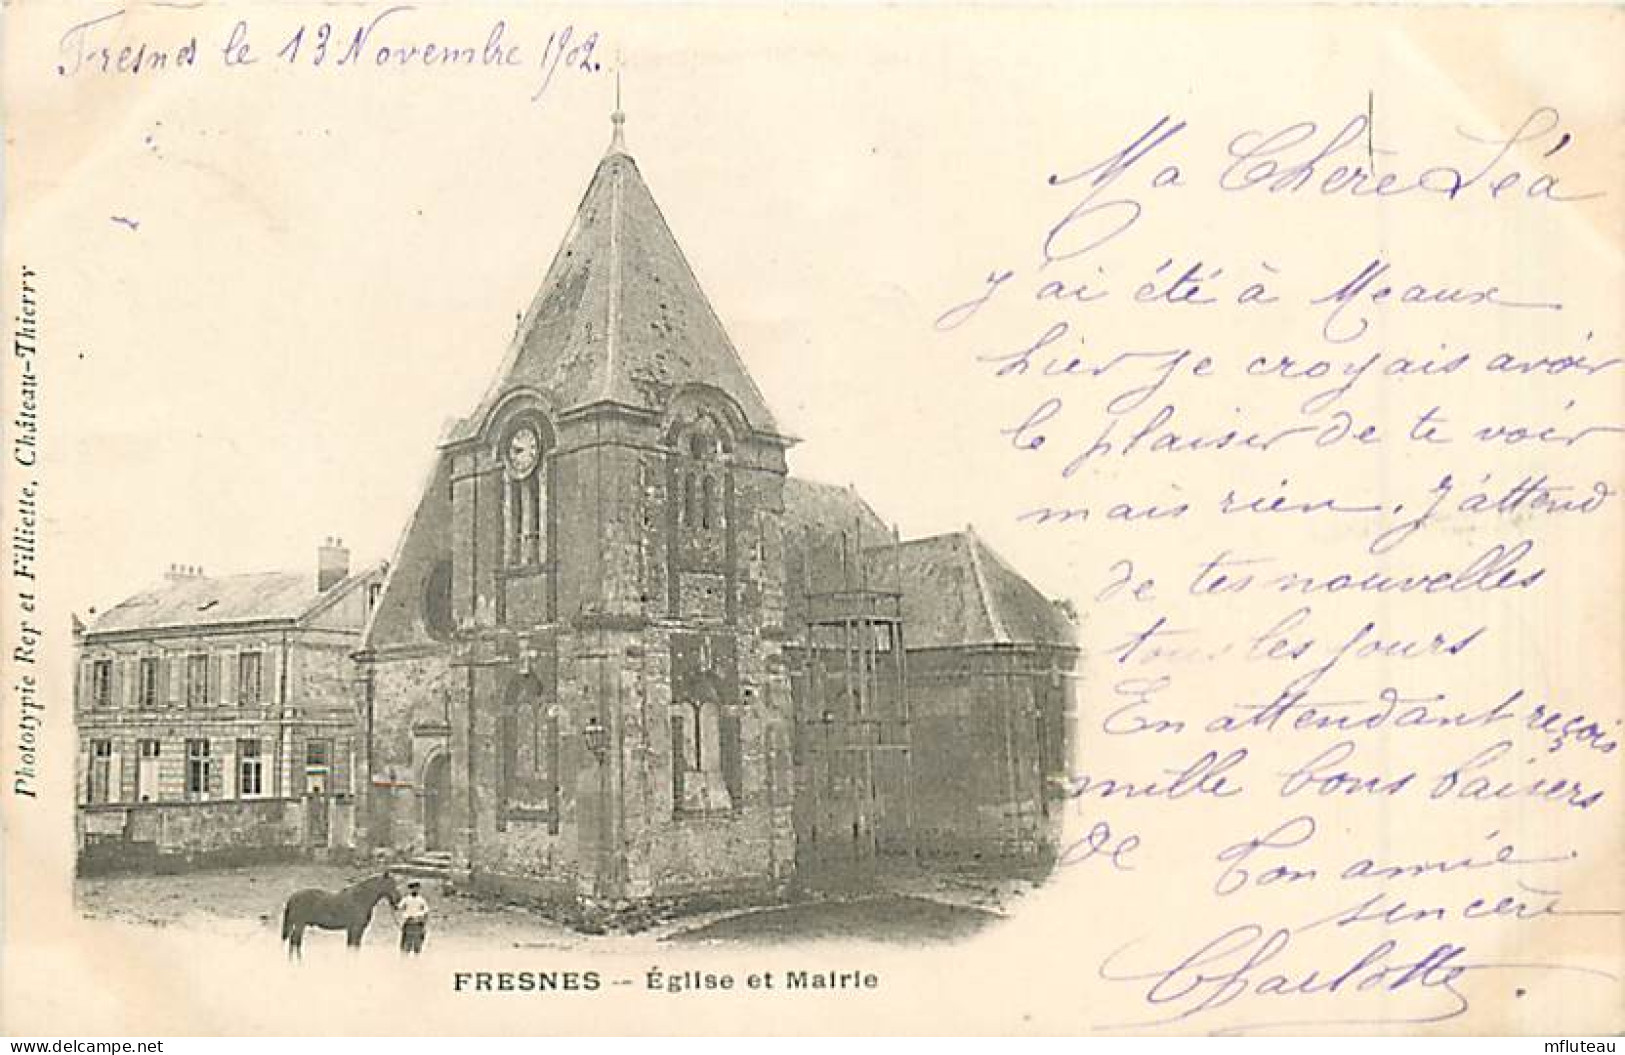 Fresnes le 13 Novembre 1902.
Ma Chère Léa
J'ai été à Meaux
hier je croyais avoir
le plaisir de te voir
mais rien. J'attend
de tes nouvelles
tous les jours
En attendant reçois
mille bons baisers
de Ton amie
sencère
Charlotte.
Phototypie Rep et Filliette, Château-Thierry
FRESNES -- Église et Mairie
mfluteau